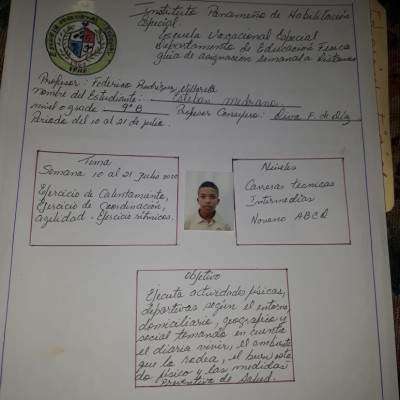 Instituto Panameño de Habilitación
Especial.
Escuela Vocacional Especial
Departamento de Educacion Fisica
Guia de asignacion semanal a Distancia
Profesor: Federico Rodriguez Villarreta
Nombre del Estudiante: Esteban Medrano
nivel o grado 9°B Profesor Consejero: Elvia F. de Díaz
Periodo del 10 al 21 de julio.
Tema
Semana 10 al 21 julio 2020
Ejercicio de Calentamiento,
Ejercicio de Coordinacion,
agilidad. Ejercicio ritmicos.
Niveles
Carreras técnicas
Intermedias
Noveno ABCD
Objetivo
Ejecuta actividades físicas,
deportivas según el entorno
domiciliario, geografico y
social tomando en cuenta
el diario vivir, el ambiente
que lo rodea, el buen esta
do físico y las medidas
Preventiva de Salud.